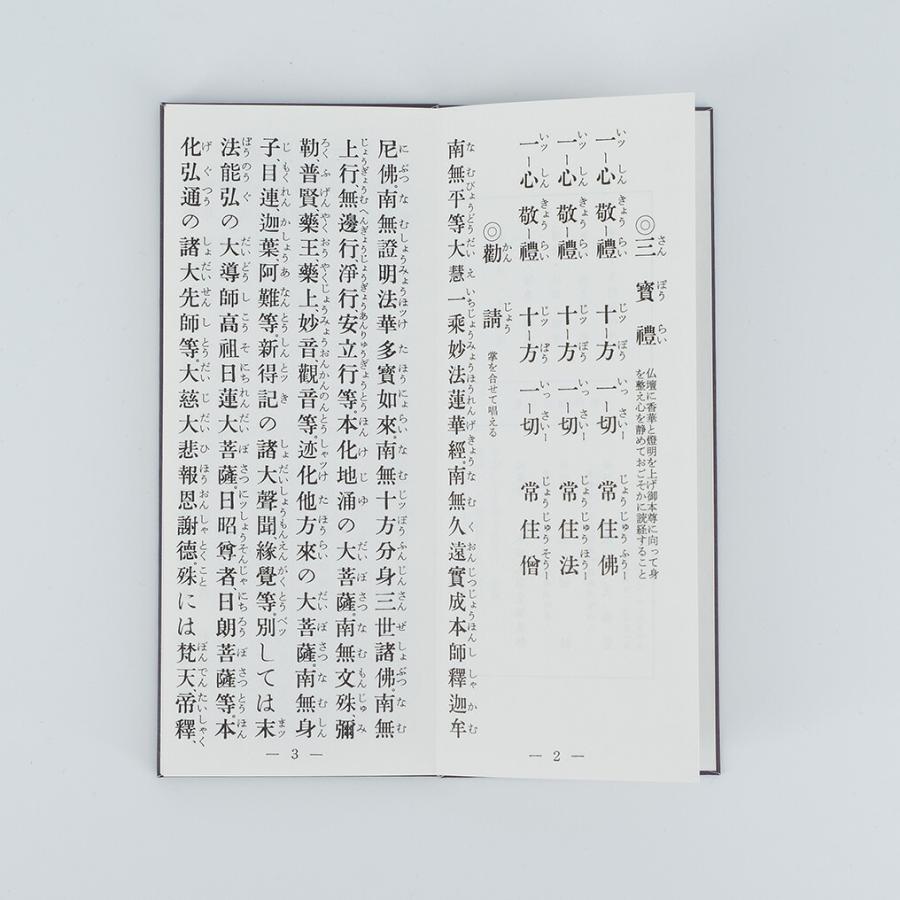 ◎三寶禮
仏壇に香華と燈明を上げ御本尊に向って身
を整え心を静めておごそかに読経すること
一ー心敬ー禮十ー方一ー切常住佛
一ー心敬ー禮十ー方一ー切常住法
一ー心敬ー禮十ー方一ー切常住僧
◎勸請掌を合せて唱える
南無平等大慧一乘妙法蓮華經。南無久遠實成本師釋迦牟
— 2 —
尼佛。南無證明法華多寶如來。南無十方分身三世諸佛。南無
上行、無邊行、淨行、安立行等、本化地涌の大菩薩。南無文殊、彌
勒、普賢、藥王、藥上、妙音、觀音等。迹化他方來の大菩薩。南無身
子、目連、迦葉、阿難等。新得記の諸大聲聞、緣覺等。別しては末
法能弘の大導師高祖日蓮大菩薩。日昭尊者、日朗菩薩等。本
化弘通の諸大先師等。大慈大悲報恩謝德。殊には梵天、帝釋、
— 3 —